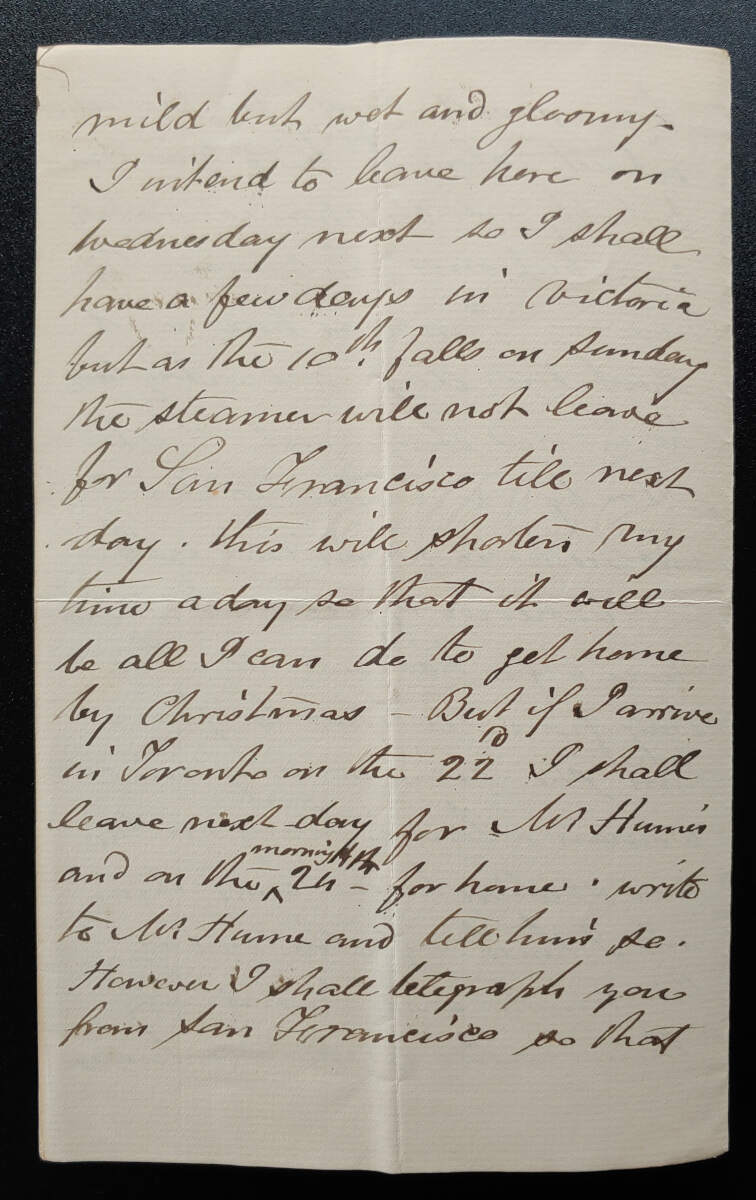 mild but wet and gloomy -
I intend to leave here on
Wednesday next so I shall
have a few days in Victoria
but as the 10th. falls on Sunday
the steamer will not leave
for San Francisco till next
day. this will shorten my
time a day so that it will
be all I can do to get home
by Christmas - But if I arrive
in Toronto on the 22d I shall
leave next day for Mr Hume's
and on the morning 24th - for home. write
to Mr Hume and tell him so.
However I shall telegraph you
from San Francisco so that